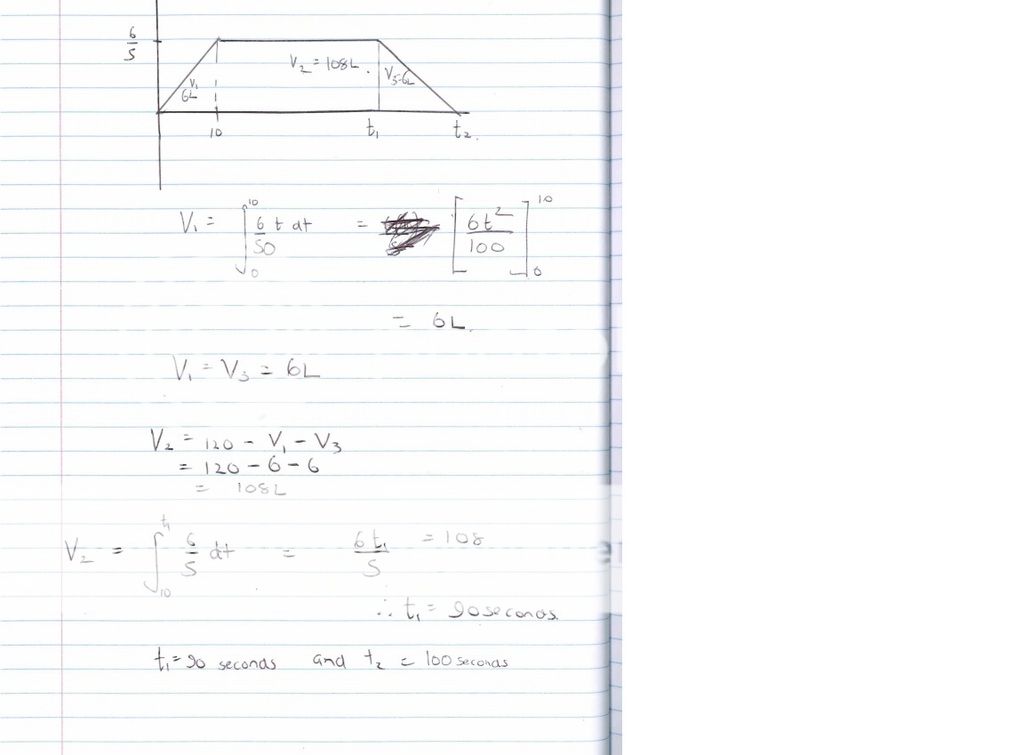 6/5
V₂ = 108L.
V₁ 6L
V₃=6L
10 t₁ t₂.
V₁ = ∫₀¹⁰ 6/50 t dt = [6t²/100]₀¹⁰
= 6L.
V₁ = V₃ = 6L
V₂ = 120 - V₁ - V₃
= 120 - 6 - 6
= 108L
V₂ = ∫₁₀^t₁ 6/5 dt = 6t₁/5 = 108
∴ t₁ = 90 seconds.
t₁ = 90 seconds and t₂ = 100 seconds